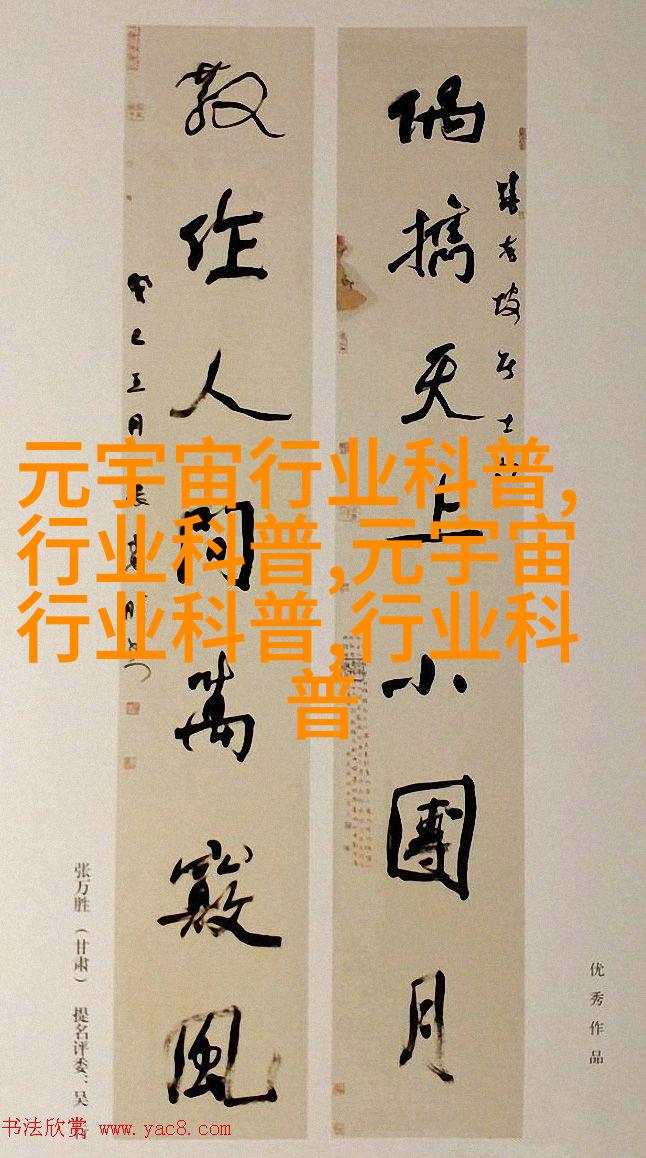 元宇宙行业科普,
行业科普,元宇宙
行业科普,行业科
普
偶攜天上小團月
散作人間萬竅風
癸巳五月
张万胜（甘肃） 提名评委：吴
优秀作品
书法欣赏 www.yac8.com